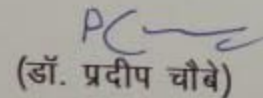 (डॉ. प्रदीप चौबे)